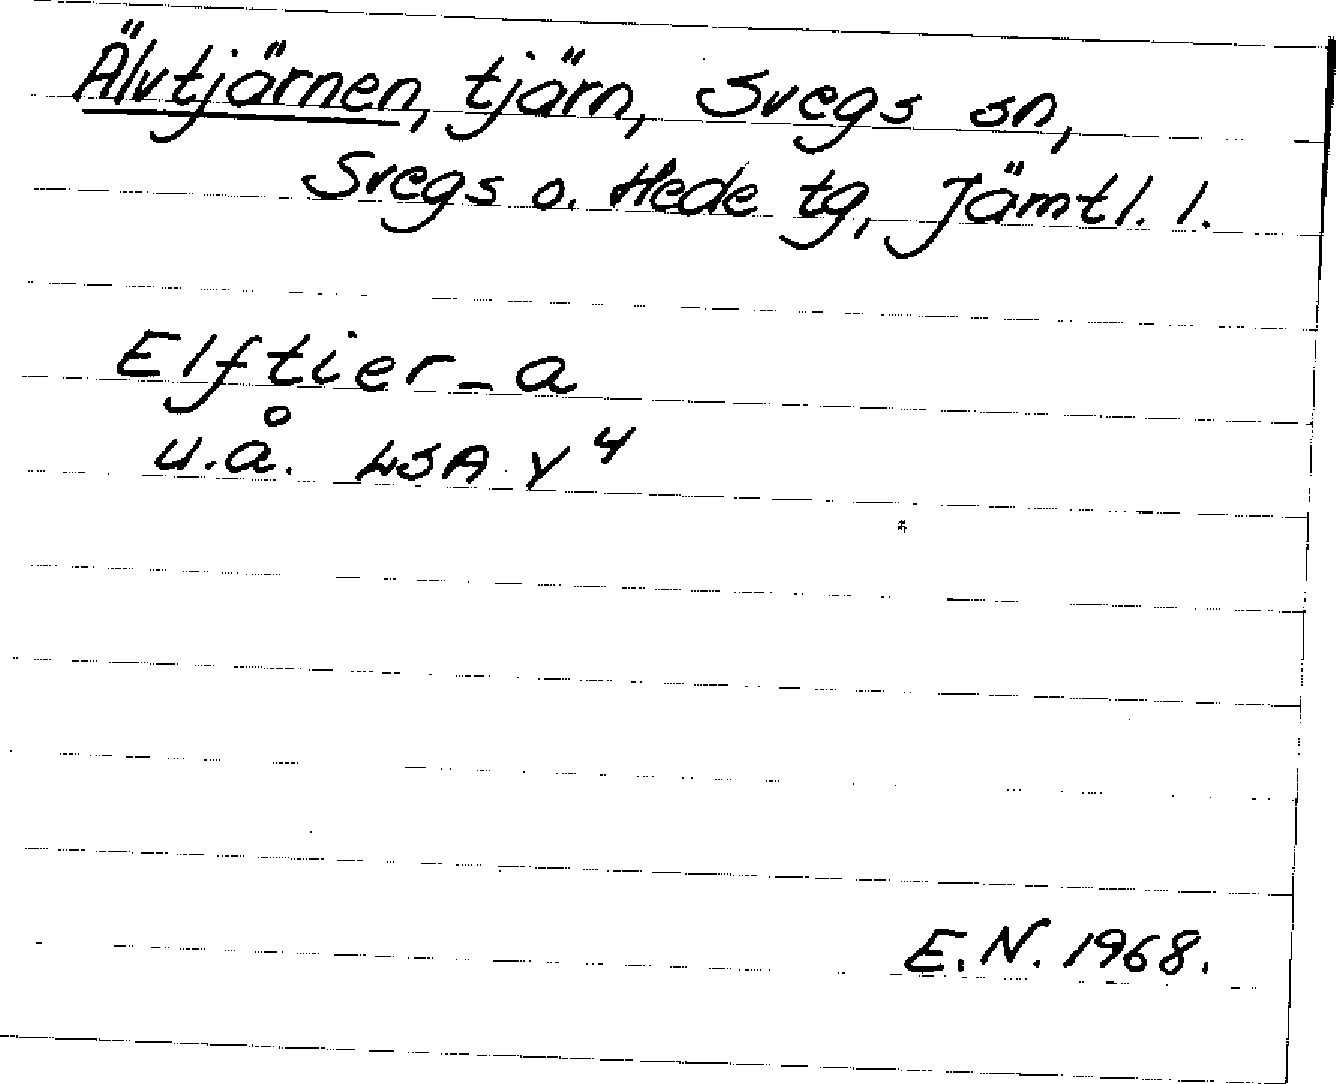 Älvtjärnen, tjärn, Svegs sn,
Svegs o. Hede tg, Jämtl. l.
Elftier-a
u.å. LSA Y⁴
E.N. 1968.